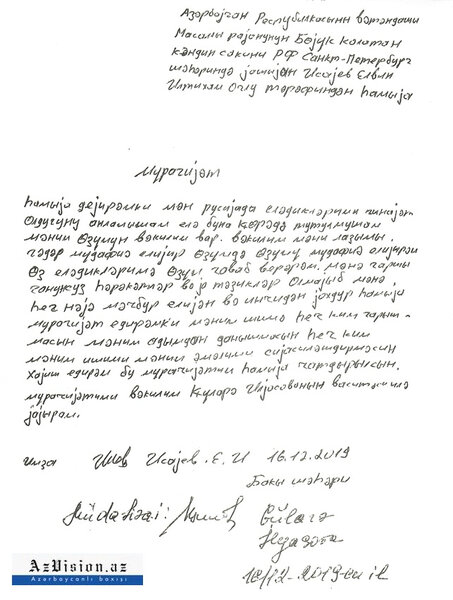 Азәрбојҹан Республикасынн вәтәндашы
Масаллы рајонунун Бөјук Колатан
кәндин сакини РФ Санкт-Петербург
шәһәриндә јашијан Исајев Елвин
Илтихам Оғлу тәрәфиндән һамыја
мурачијәт
һамыја дејирәмки мән русијада еләдикләрими ҹинајәт
олдуғуну анламышам елә буна көрәдә тутулмушам
мәним өзүмүн вәкилим вар. вәкилим мәни лазымы
гәдәр мудафиә елијир өзүмдә өзүмү мудафиә елијирәм
өз еләдикләримә өзүм ҹаваб верәрәм. мәнә гаршы
ганунсуз һәрәкәтләр вә јә тәзјигләр олмајыб мәнә
һеч нәјә мәҹбур елијән вә инҹидән јохдур һамыја
мурачијәт едирәмки мәним ишимә һеч ким гарыш-
масын мәним адымдан данышмасын һеч ким
мәним ишими мәним әмәлими сијасиләшдирмәсин
Хаһиш едирәм бу мурачијәтими һамыја чатдырасын.
мурачијәтими вәкилим Күларә Илјасованын васитәсилә
јазырам.
имза Исајев. Е. И 16.12.2019
Бакы шәһәри
Müdafiəçi: Gülarə
İlyasova
16/12-2019-cu il
AzVision.az
Azərbaycanlı baxışı